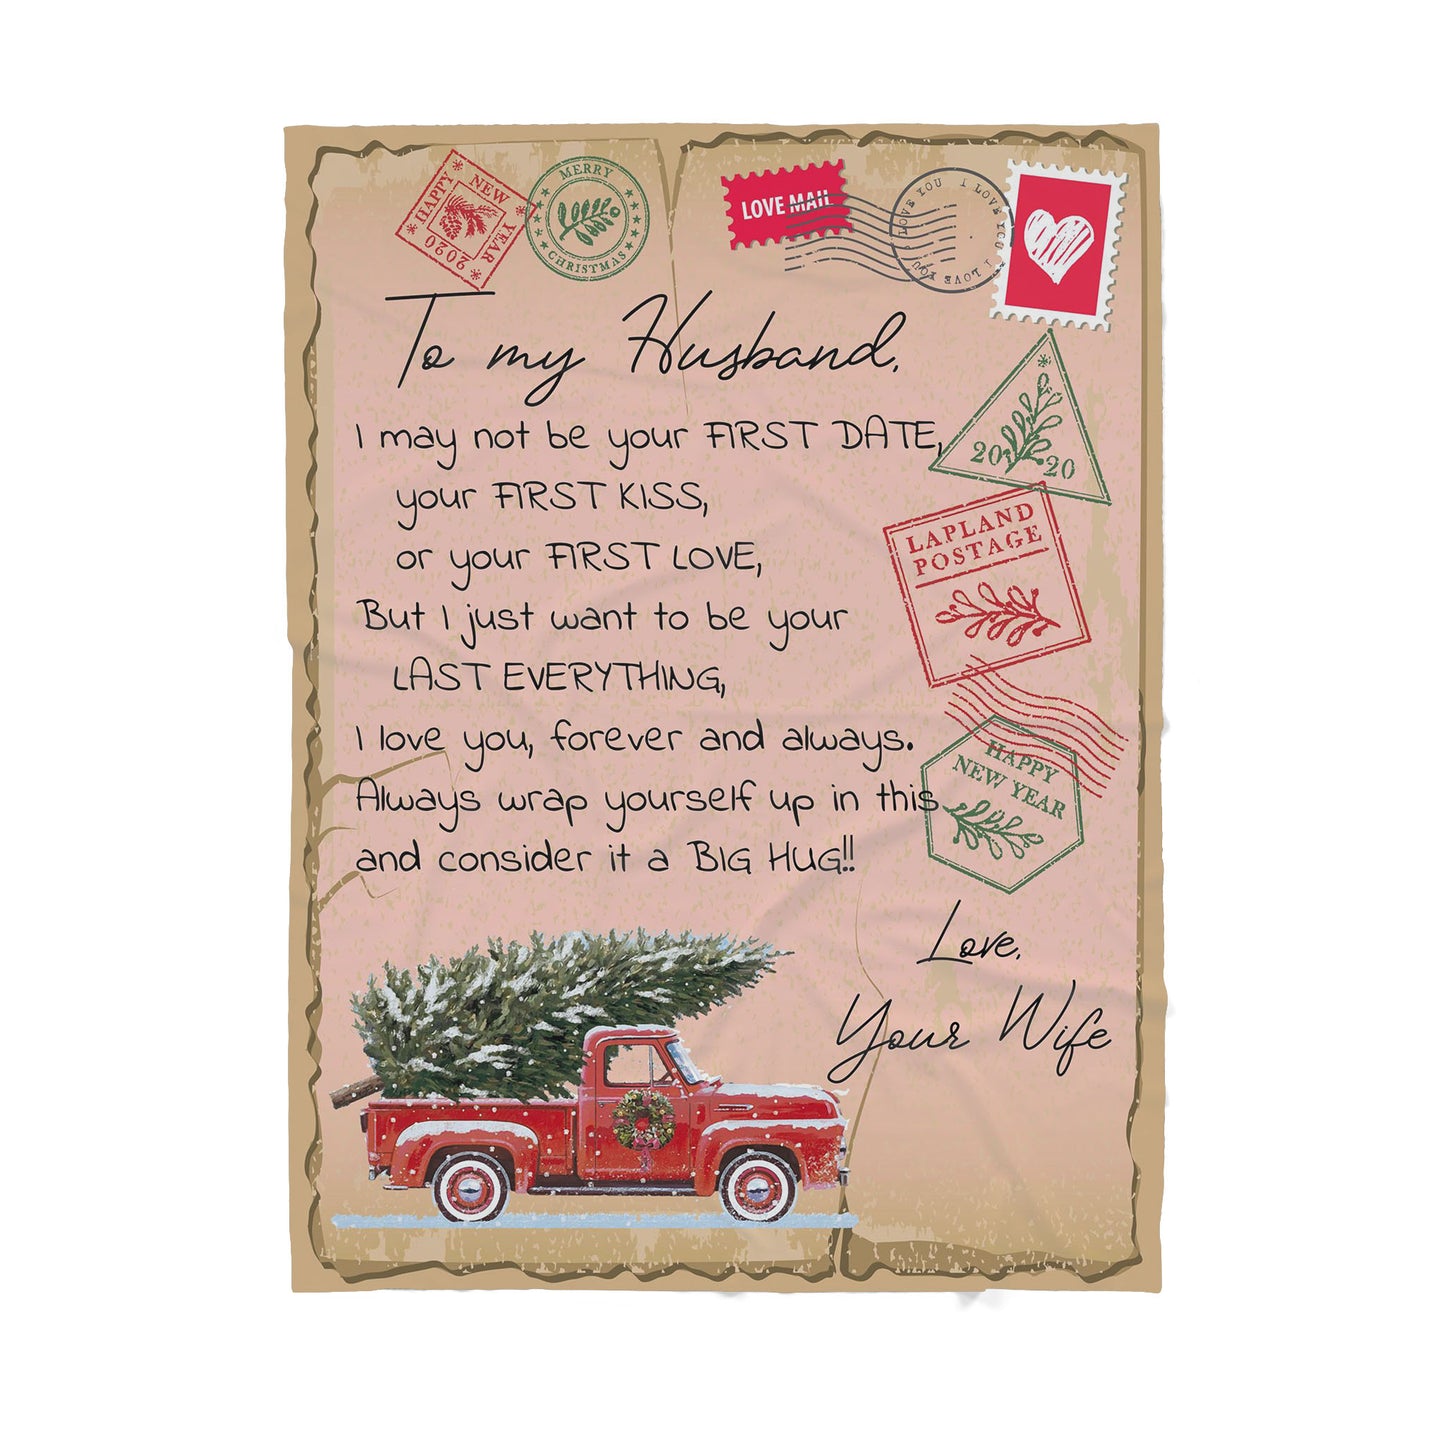 HAPPY NEW YEAR 2020
MERRY CHRISTMAS
LOVE MAIL
I LOVE YOU I LOVE YOU I LOVE YOU
To my Husband,
I may not be your FIRST DATE,
your FIRST KISS,
or your FIRST LOVE,
But I just want to be your
LAST EVERYTHING,
I love you, forever and always.
Always wrap yourself up in this
and consider it a BIG HUG!!
2020
LAPLAND
POSTAGE
HAPPY
NEW YEAR
Love,
Your Wife